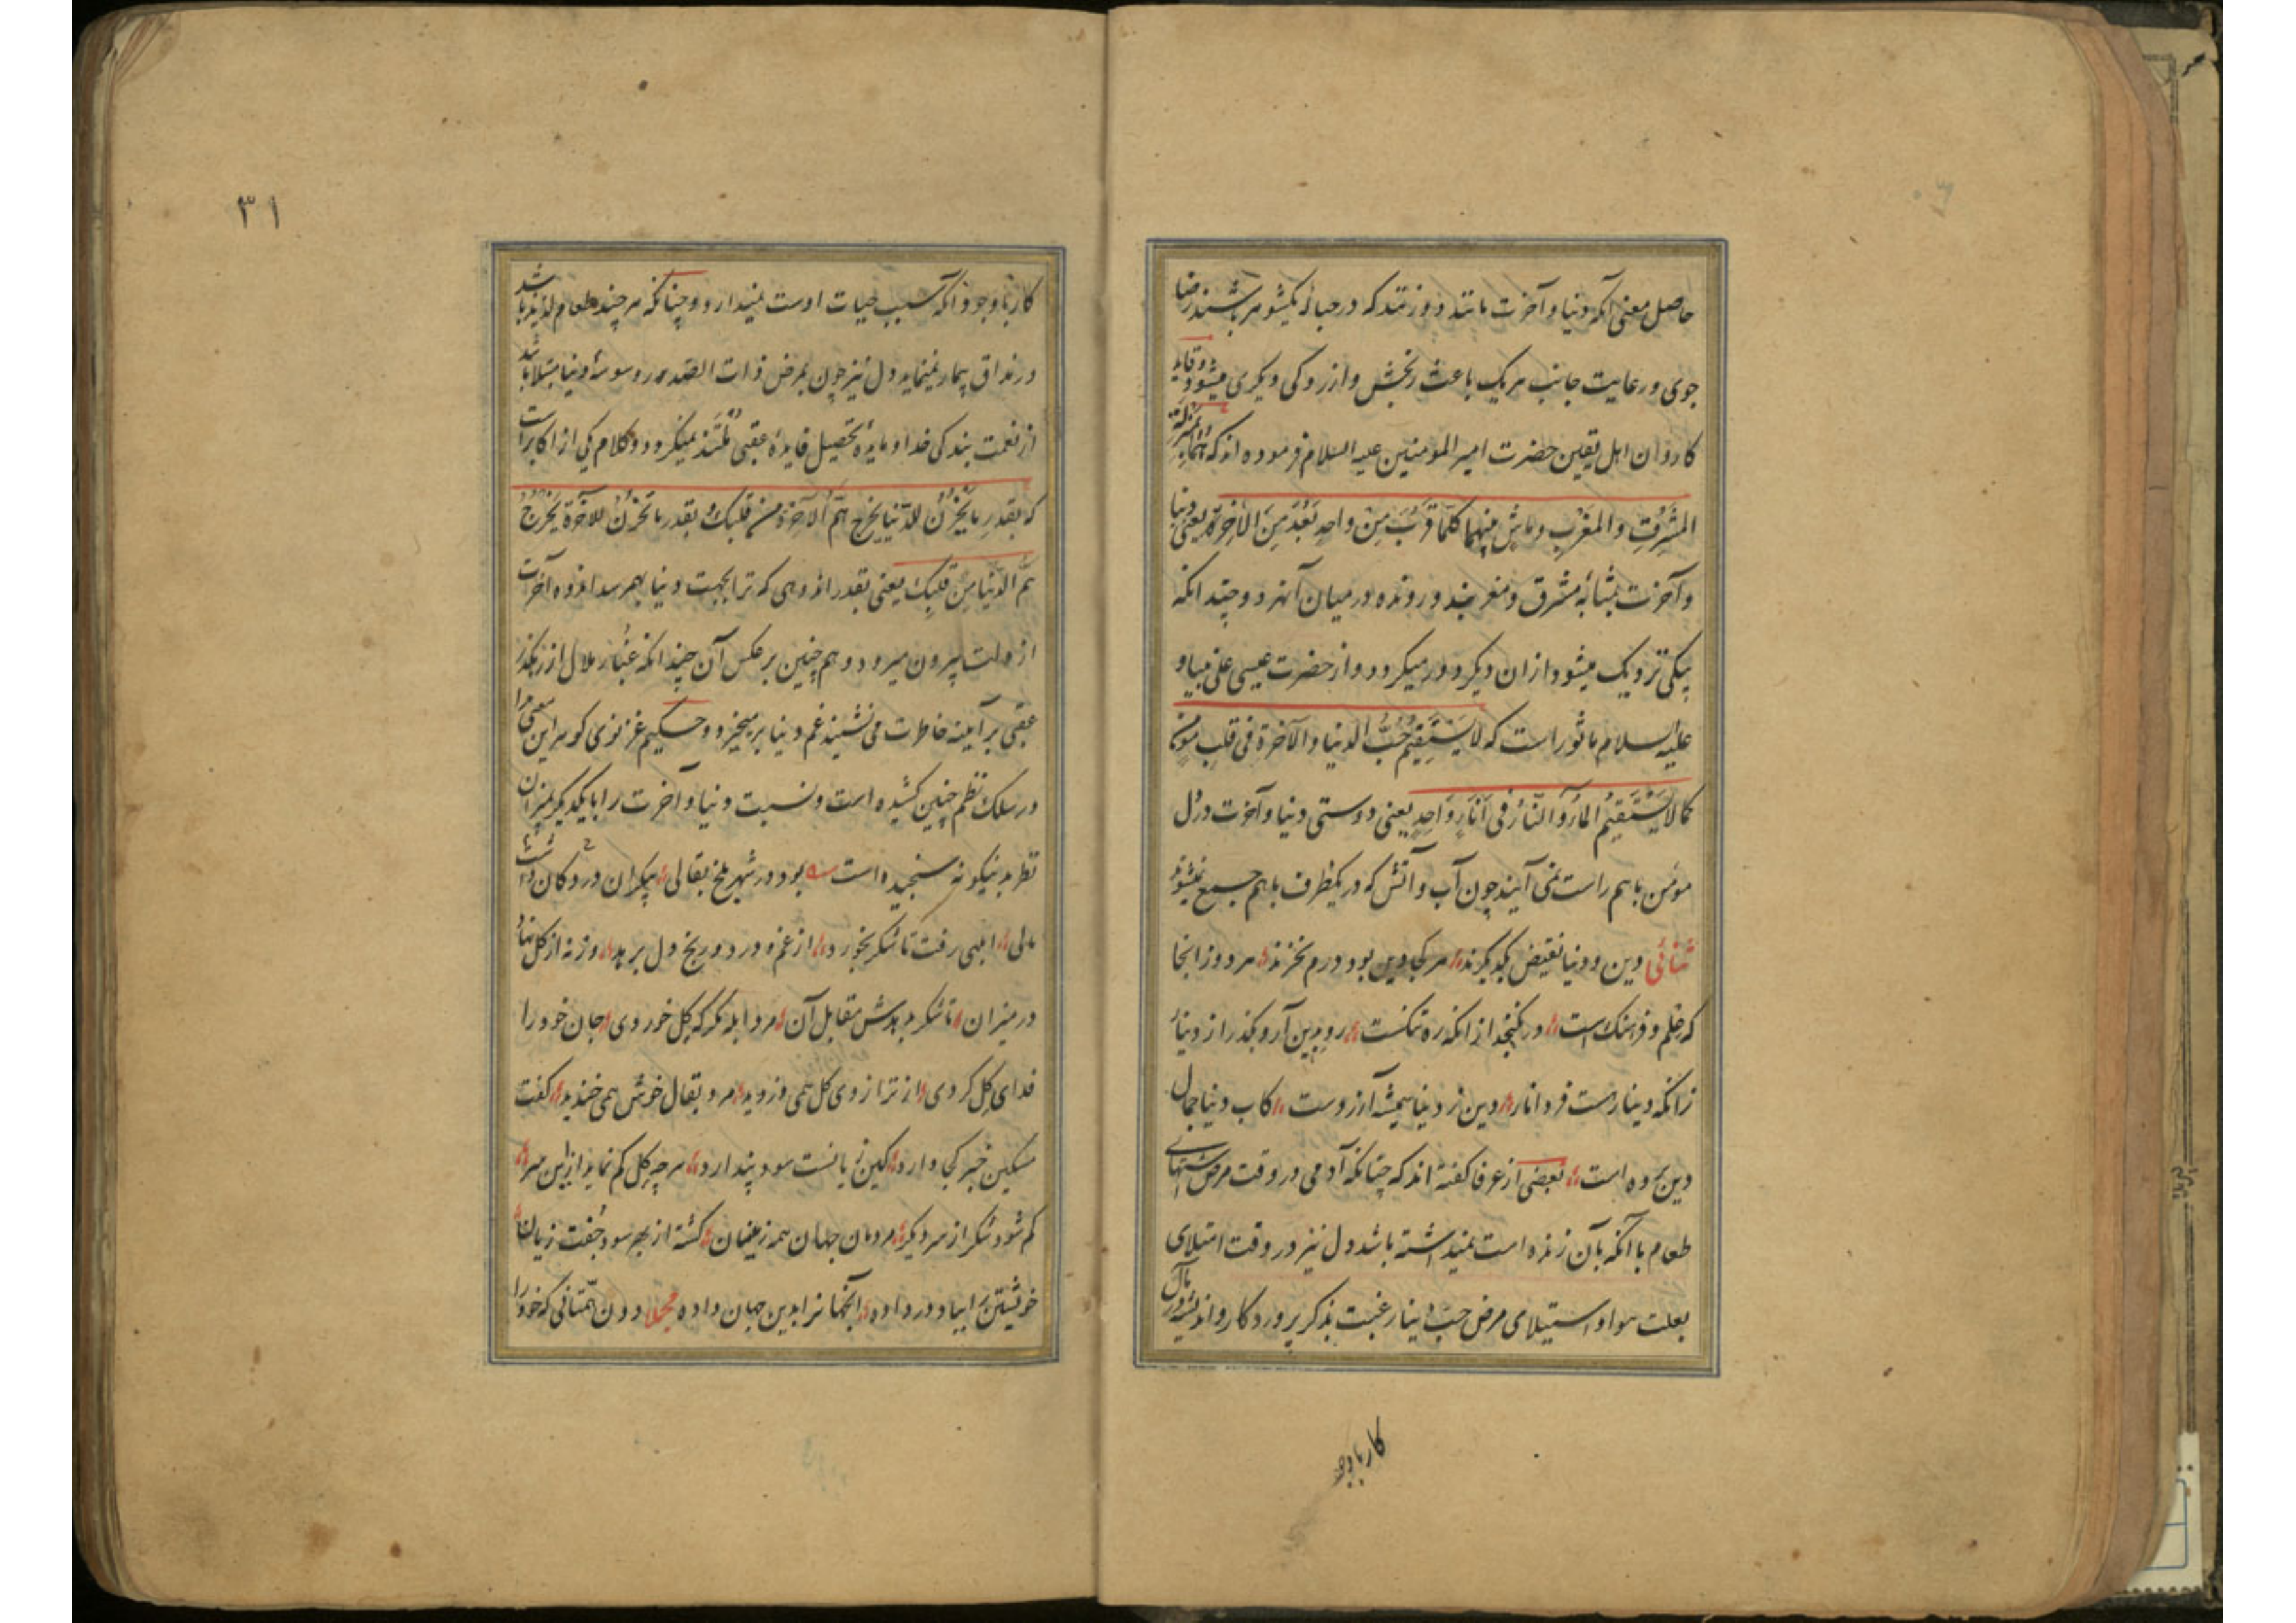 حاصل معنی آنکه دنیا و آخرت مانند دو زنند که در حبالهٔ یکشوهر باشند رضا
جوی و رعایت جانب هر یک باعث رنجش و آزردگی دیگری میشود و قاید
کاروان اهل یقین حضرت امیر المومنین علیه السلام فرموده اند که انهما بمنزلة
المَشرِقِ والمَغرِبِ وماشٍ بینهما کلّما قَرُبَ مِن واحدٍ بَعُدَ مِنَ الآخِرة یعنی دنیا
و آخرت بمثابهٔ مشرق و مغربند و رونده در میان آنهر دو چندانکه
بیکی نزدیک میشود از ان دیگر دور میگردد و از حضرت عیسی علی نبیا و
علیه السلام ماثور است که لا یَستَقیمُ حُبُّ الدنیا والآخرة فی قلبِ مؤمنٍ
کما لا یَستَقیمُ الماءُ و النّارُ فی اناءٍ واحدٍ یعنی دوستی دنیا و آخرت در دل
مؤمن باهم راست نمی آیند چون آب و آتش که در یکظرف باهم جمع نمیشوند
ثنائی دین و دنیا نقیض یکدیگرند هر کجا دین بود درم نخرند مر دو ز انجا
که حلم و فرهنک است در نکنجد از انکه ره تنکست رو بدین آر و بکذر از دنیا
زانکه دینار هست فردا نار دین نر دنیا همیشه آرزوست کاب دنیا جمال
دین برده است بعضی از عرفا کفته اند که چنانکه آدمی در وقت مرض اشتهای
طعام با آنکه بآن زنده است نمیداشته باشد دل نیز در وقت ابتلای
بعلت هوا و استیلای مرض حبّ دنیا رغبت بذکر پروردکار و اندیشهٔ مآل
کار باوجو
۳۱
کار باوجود آنکه سبب حیات اوست نمیدارد و چنانکه هر چند طعام لذیذ باشد
در مذاق بیمار نمینماید دل نیز چون بمرض ذات الصدور وسوسهٔ دنیا مبتلا باشد
از نعمت بندکی خدا و مایدهٔ تحصیل فایدهٔ عقبی مُلتَذ نمیکردد و کلام یکی از اکابر است
که بقدرِ ما تَحزُنُ للدّنیا یَخرج همُّ الآخرة من قلبک و بقدر ما تَحزُنُ للآخرة یَخرُجُ
همُّ الدّنیا مِن قلبِک یعنی بقدر اندوهی که ترا بجهت دنیا بهم رسد اندوه آخرت
از دلت بیرون میرود و هم چنین بر عکس آن چندانکه غبار ملال از رهکذر
عقبی بر آینه خاطرت می نشیند غم دنیا بر میخیزد و حکیم غزنوی کوهر این معنی را
در سلک نظم چنین کشیده است و نسبت دنیا و آخرت را بایکدیکر بمیزان
نظر بدنیکونه سنجیده است بود در شهر بلخ بقالی بیکران در دکان داشت
مالی ابلهی رفت تا شکر بخورد از غم و درد و رنج دل ببرد وزنه از کل نهاد
در میزان تا شکر بدهدش مقابل آن مرد ابله مکر که کِل خوردی جان خود را
فدای کِل کردی از ترازوی کل همی دزدید مرد بقال خوش همی خندید کفت
مسکین خبر کجا دارد کین زیانست سود پندارد هر چه کل کم نماید از این سر
کم شود شکر از سر دیکر مردمان جهان همه زینسان کشته از بهر سود جفت زیان
خویشتن را بباد در داده آنجهان را بدین جهان داده مجملا دون همّتانی که خود را